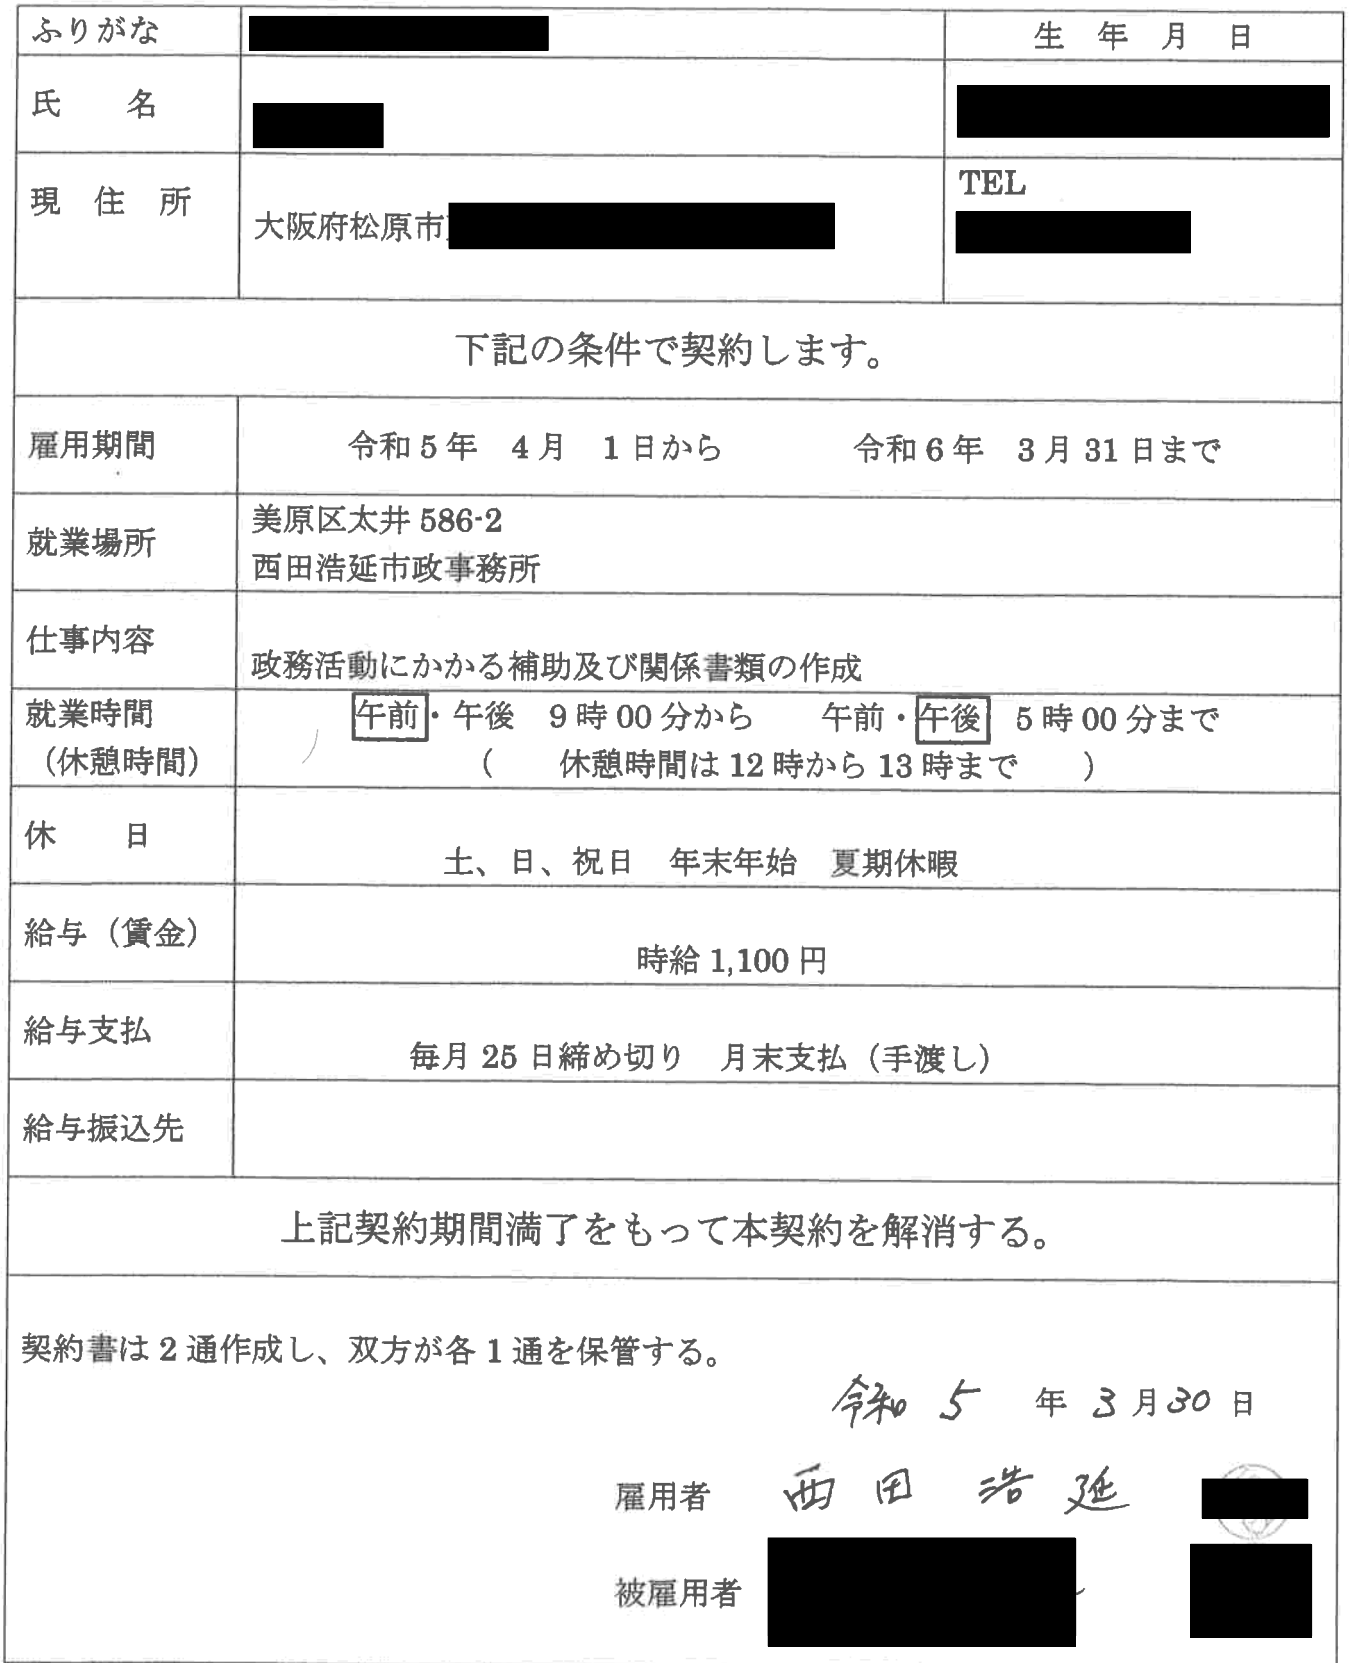 ふりがな
生 年 月 日
氏 名
現 住 所
大阪府松原市
TEL
下記の条件で契約します。
雇用期間
令和5年 4月 1日から 令和6年 3月31日まで
就業場所
美原区太井 586-2
西田浩延市政事務所
仕事内容
政務活動にかかる補助及び関係書類の作成
就業時間
(休憩時間)
午前・午後 9時00分から 午前・午後 5時00分まで
( 休憩時間は12時から13時まで )
休 日
土、日、祝日 年末年始 夏期休暇
給与(賃金)
時給1,100円
給与支払
毎月25日締め切り 月末支払(手渡し)
給与振込先
上記契約期間満了をもって本契約を解消する。
契約書は2通作成し、双方が各1通を保管する。
令和 5 年 3月30日
雇用者 西田 浩延
被雇用者